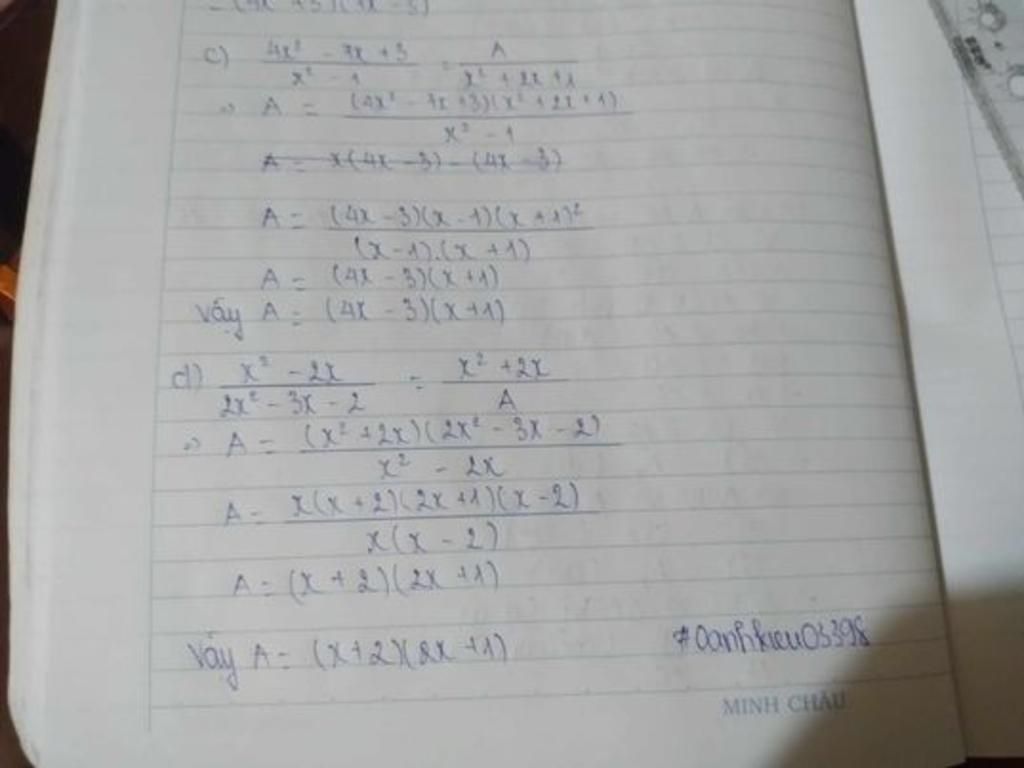 = (4x + 3)(4x - 3)
c) \frac{4x² - 7x + 3}{x² - 1} = \frac{A}{x² + 2x + 1}
=> A = \frac{(4x² - 7x + 3)(x² + 2x + 1)}{x² - 1}
A = x(4x - 3) - (4x - 3)
A = \frac{(4x - 3)(x - 1)(x + 1)²}{(x - 1).(x + 1)}
A = (4x - 3)(x + 1)
Vậy A = (4x - 3)(x + 1)
d) \frac{x² - 2x}{2x² - 3x - 2} = \frac{x² + 2x}{A}
=> A = \frac{(x² + 2x)(2x² - 3x - 2)}{x² - 2x}
A = \frac{x(x + 2)(2x + 1)(x - 2)}{x(x - 2)}
A = (x + 2)(2x + 1)
Vậy A = (x + 2)(2x + 1)
#Oanhkieu03398
MINH CHÂU